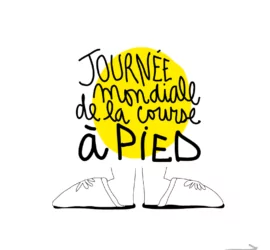 JOURNÉE
mondiale
de la course
à PIED